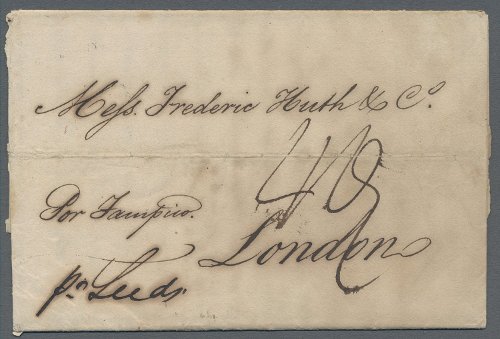 Messrs. Frederic Huth & Co.
48
Por Tampico.
London
pr Leeds